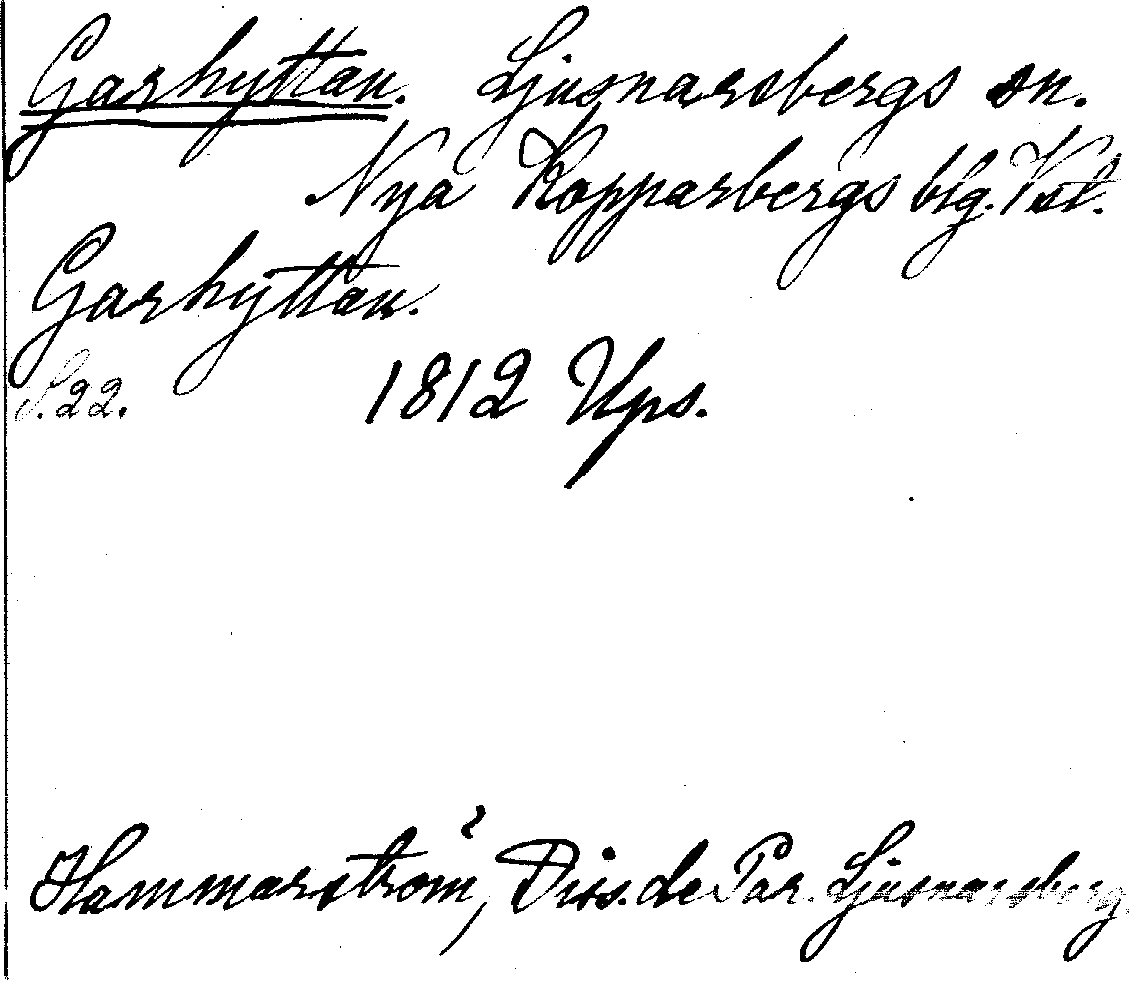 Garhyttan. Ljusnarsbergs sn.
Nya Kopparbergs blg. Vstl.
Garhyttan.
S. 22. 1812 Ups.
Hammarström, Diss. de Par. Ljusnarsberg.